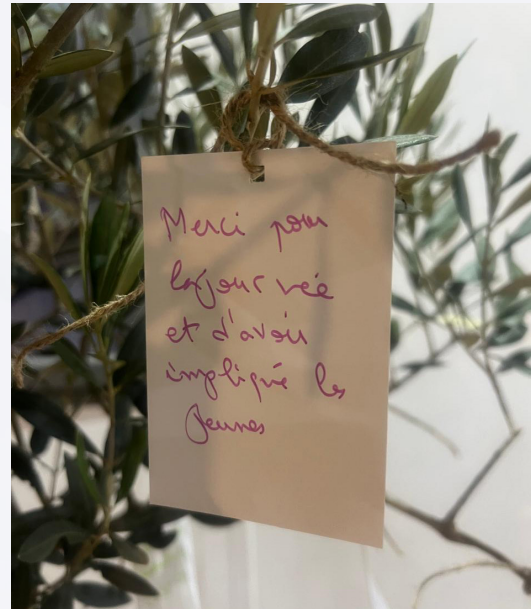 Merci pour
la journeé
et d'avoir
impliqué les
Jeunes